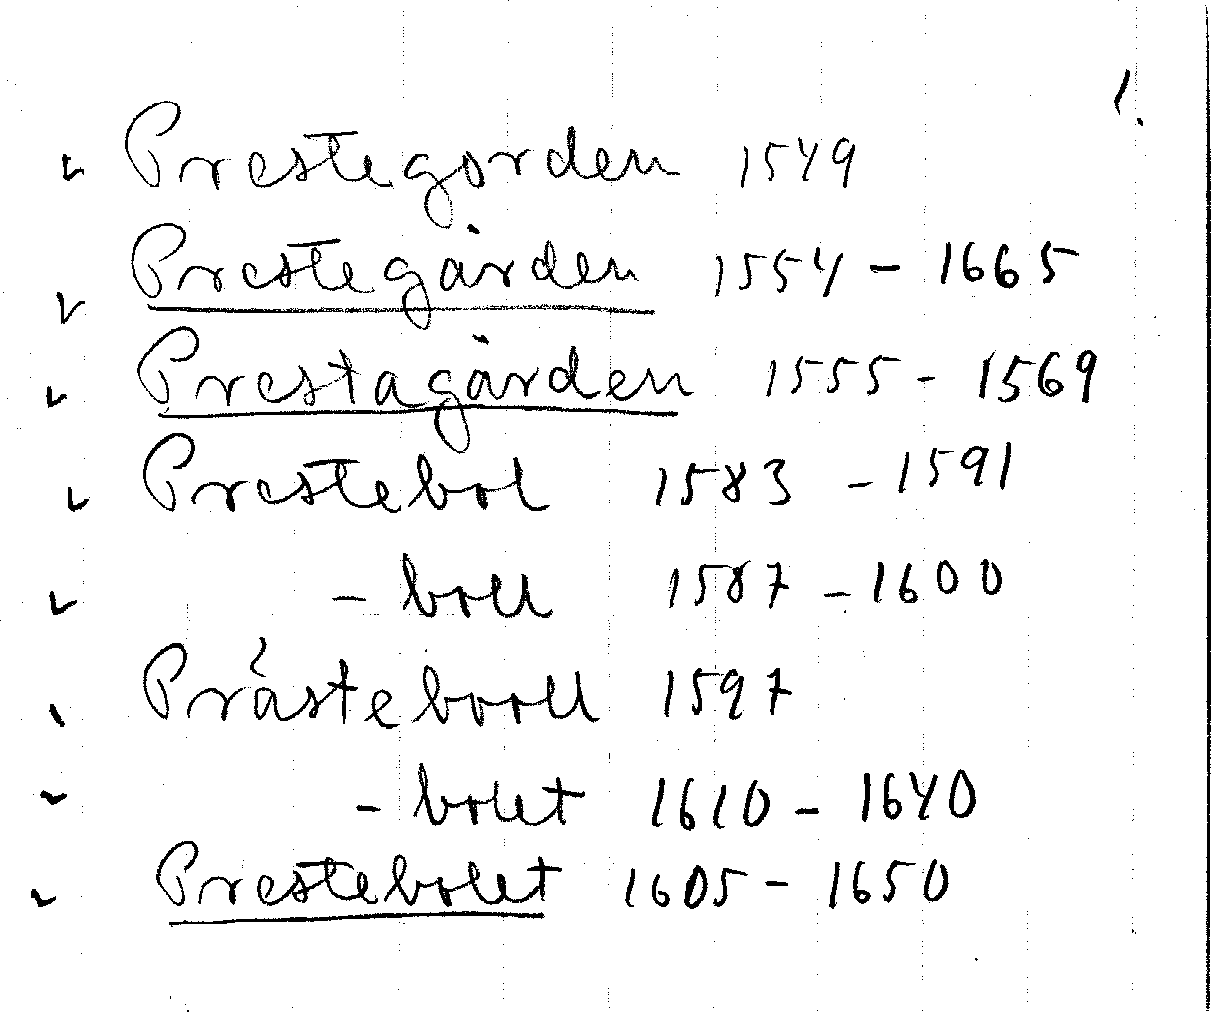 1.
Prestegorden 1549
Prestegården 1554 - 1665
Prestagården 1555 - 1569
Prestebol 1583 - 1591
- boll 1587 - 1600
Prästebooll 1597
- bolet 1610 - 1640
Prestebolet 1605 - 1650